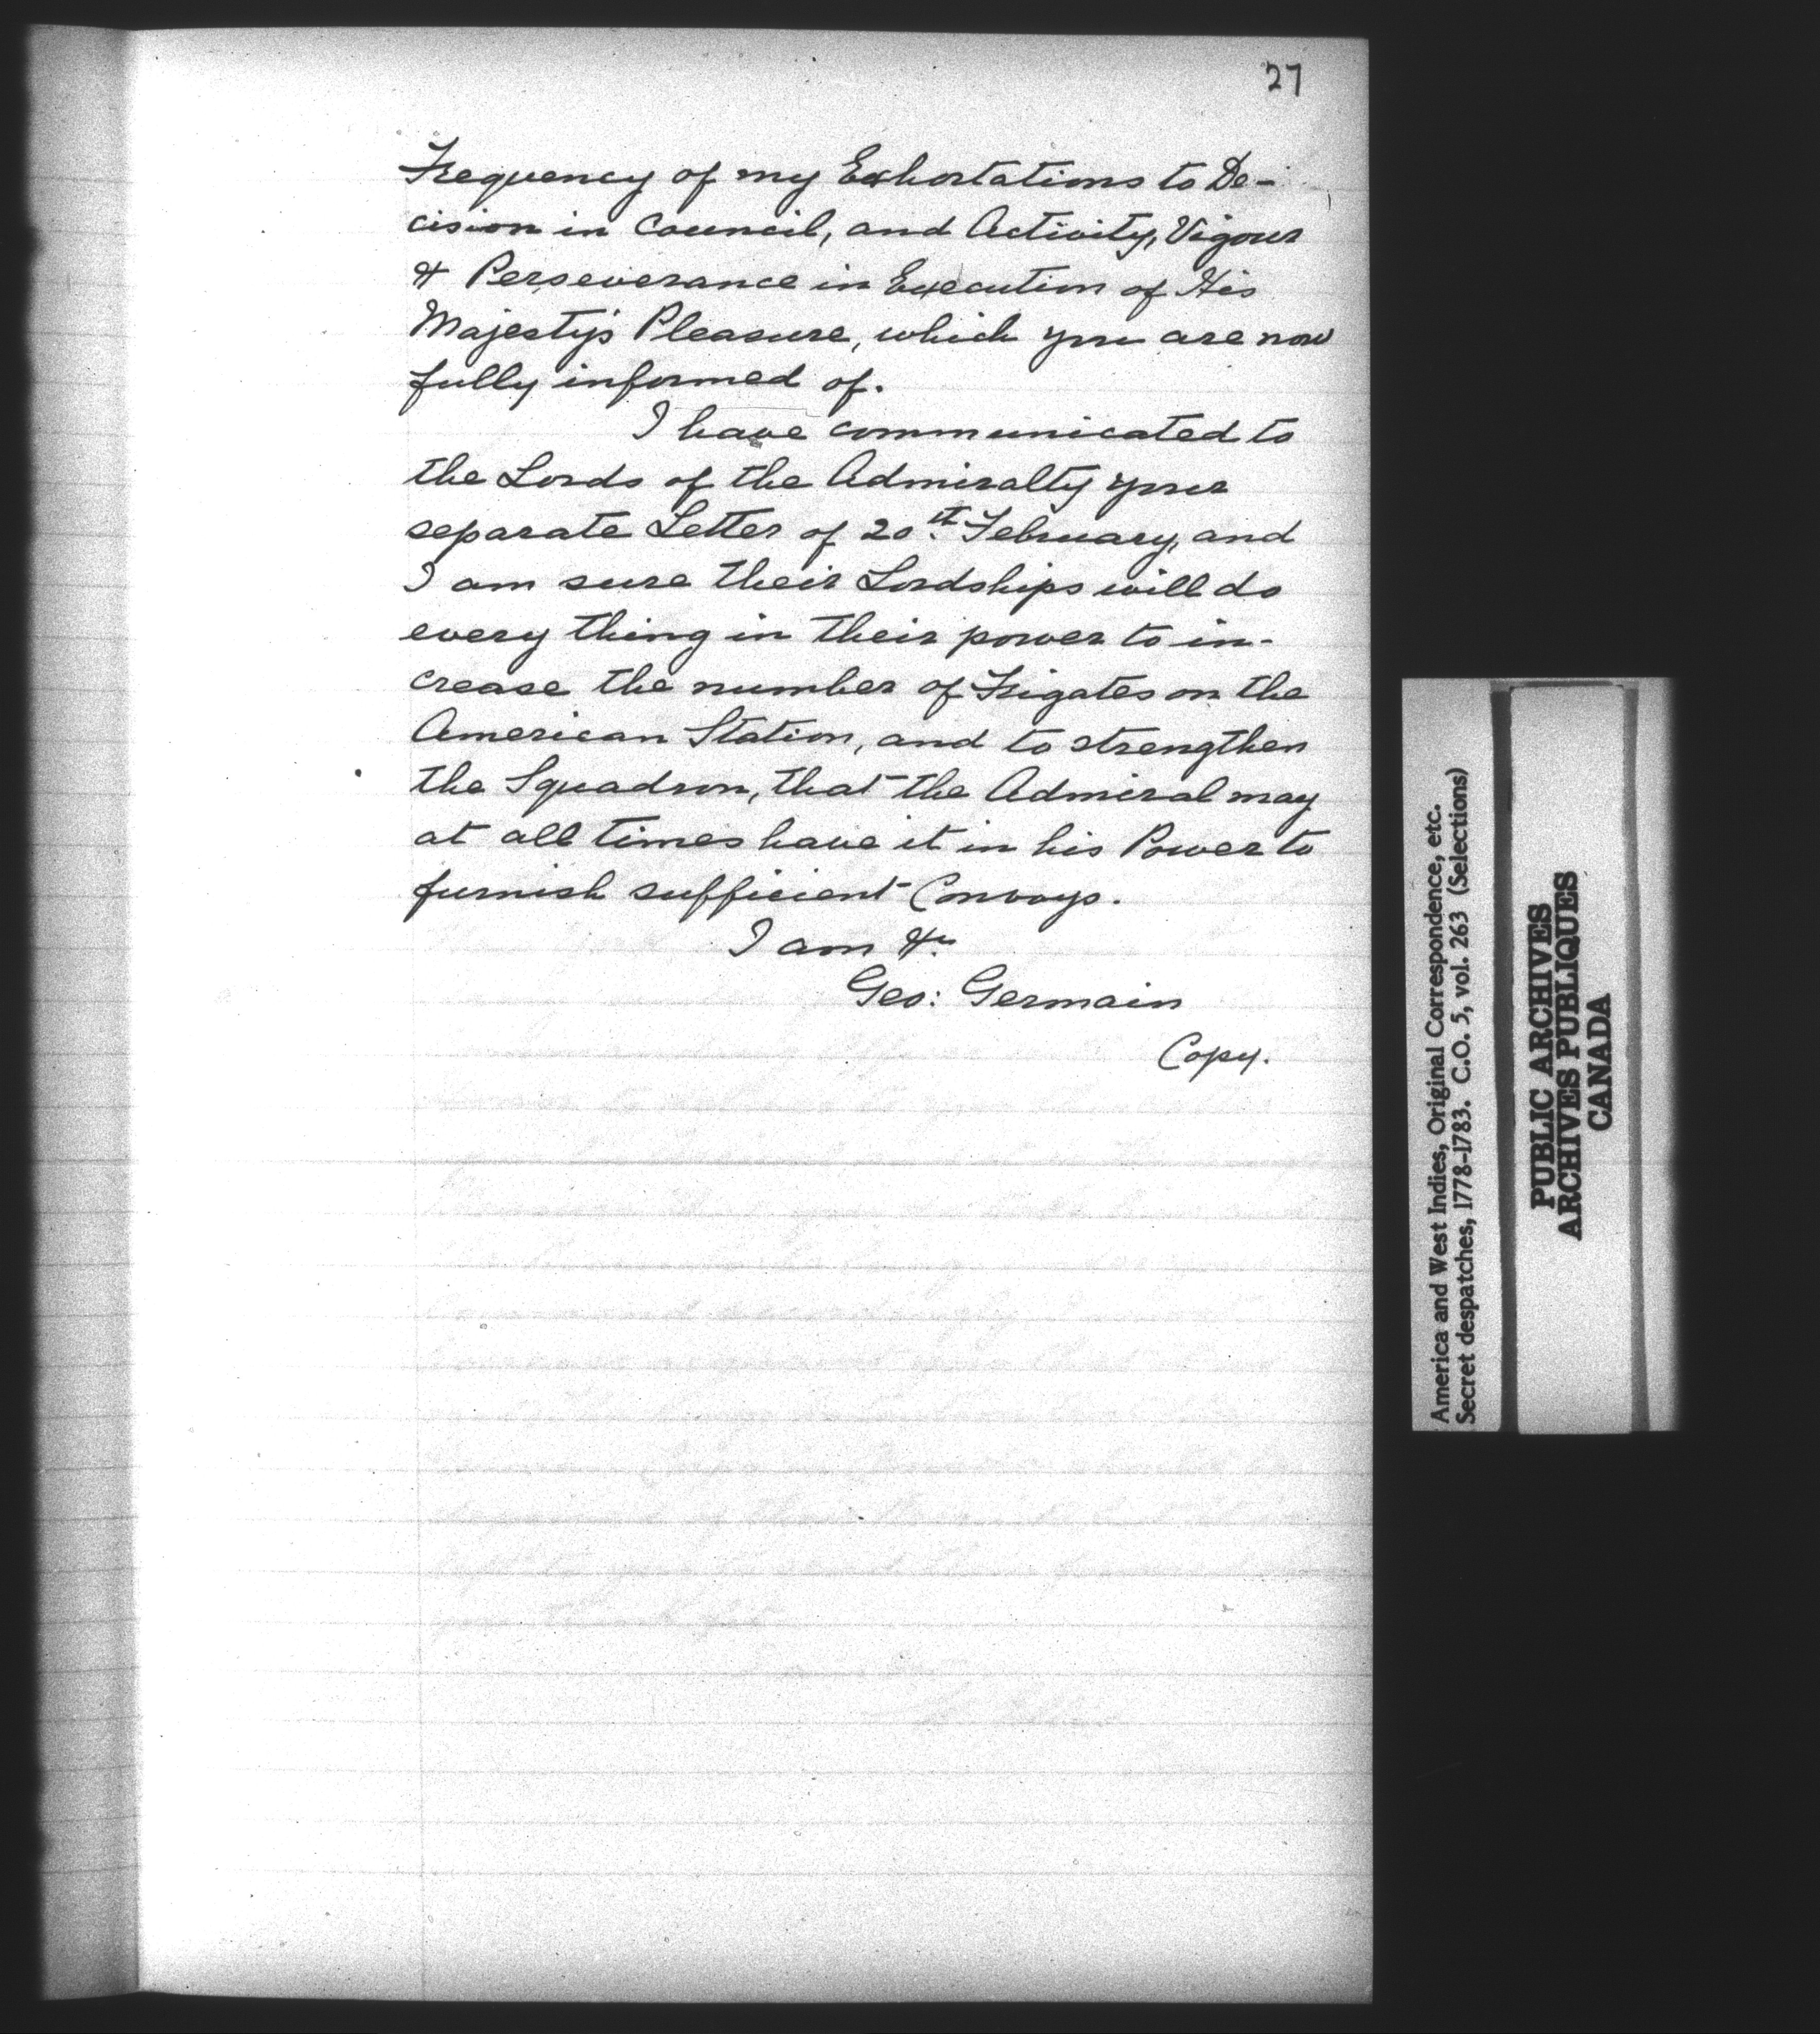 27
Frequency of my Exhortations to De-
cision in Council, and Activity, Vigour
& Perseverance in Execution of His
Majesty's Pleasure, which you are now
fully informed of.
I have communicated to
the Lords of the Admiralty your
separate Letter of 20th. February, and
I am sure their Lordships will do
every thing in their power to in-
crease the number of Frigates on the
American Station, and to strengthen
the Squadron, that the Admiral may
at all times have it in his Power to
furnish sufficient Convoys.
I am &c.
Geo: Germain
Copy.
America and West Indies, Original Correspondence, etc.
Secret despatches, 1778-1783. C.O. 5, vol. 263 (Selections)
PUBLIC ARCHIVES
ARCHIVES PUBLIQUES
CANADA